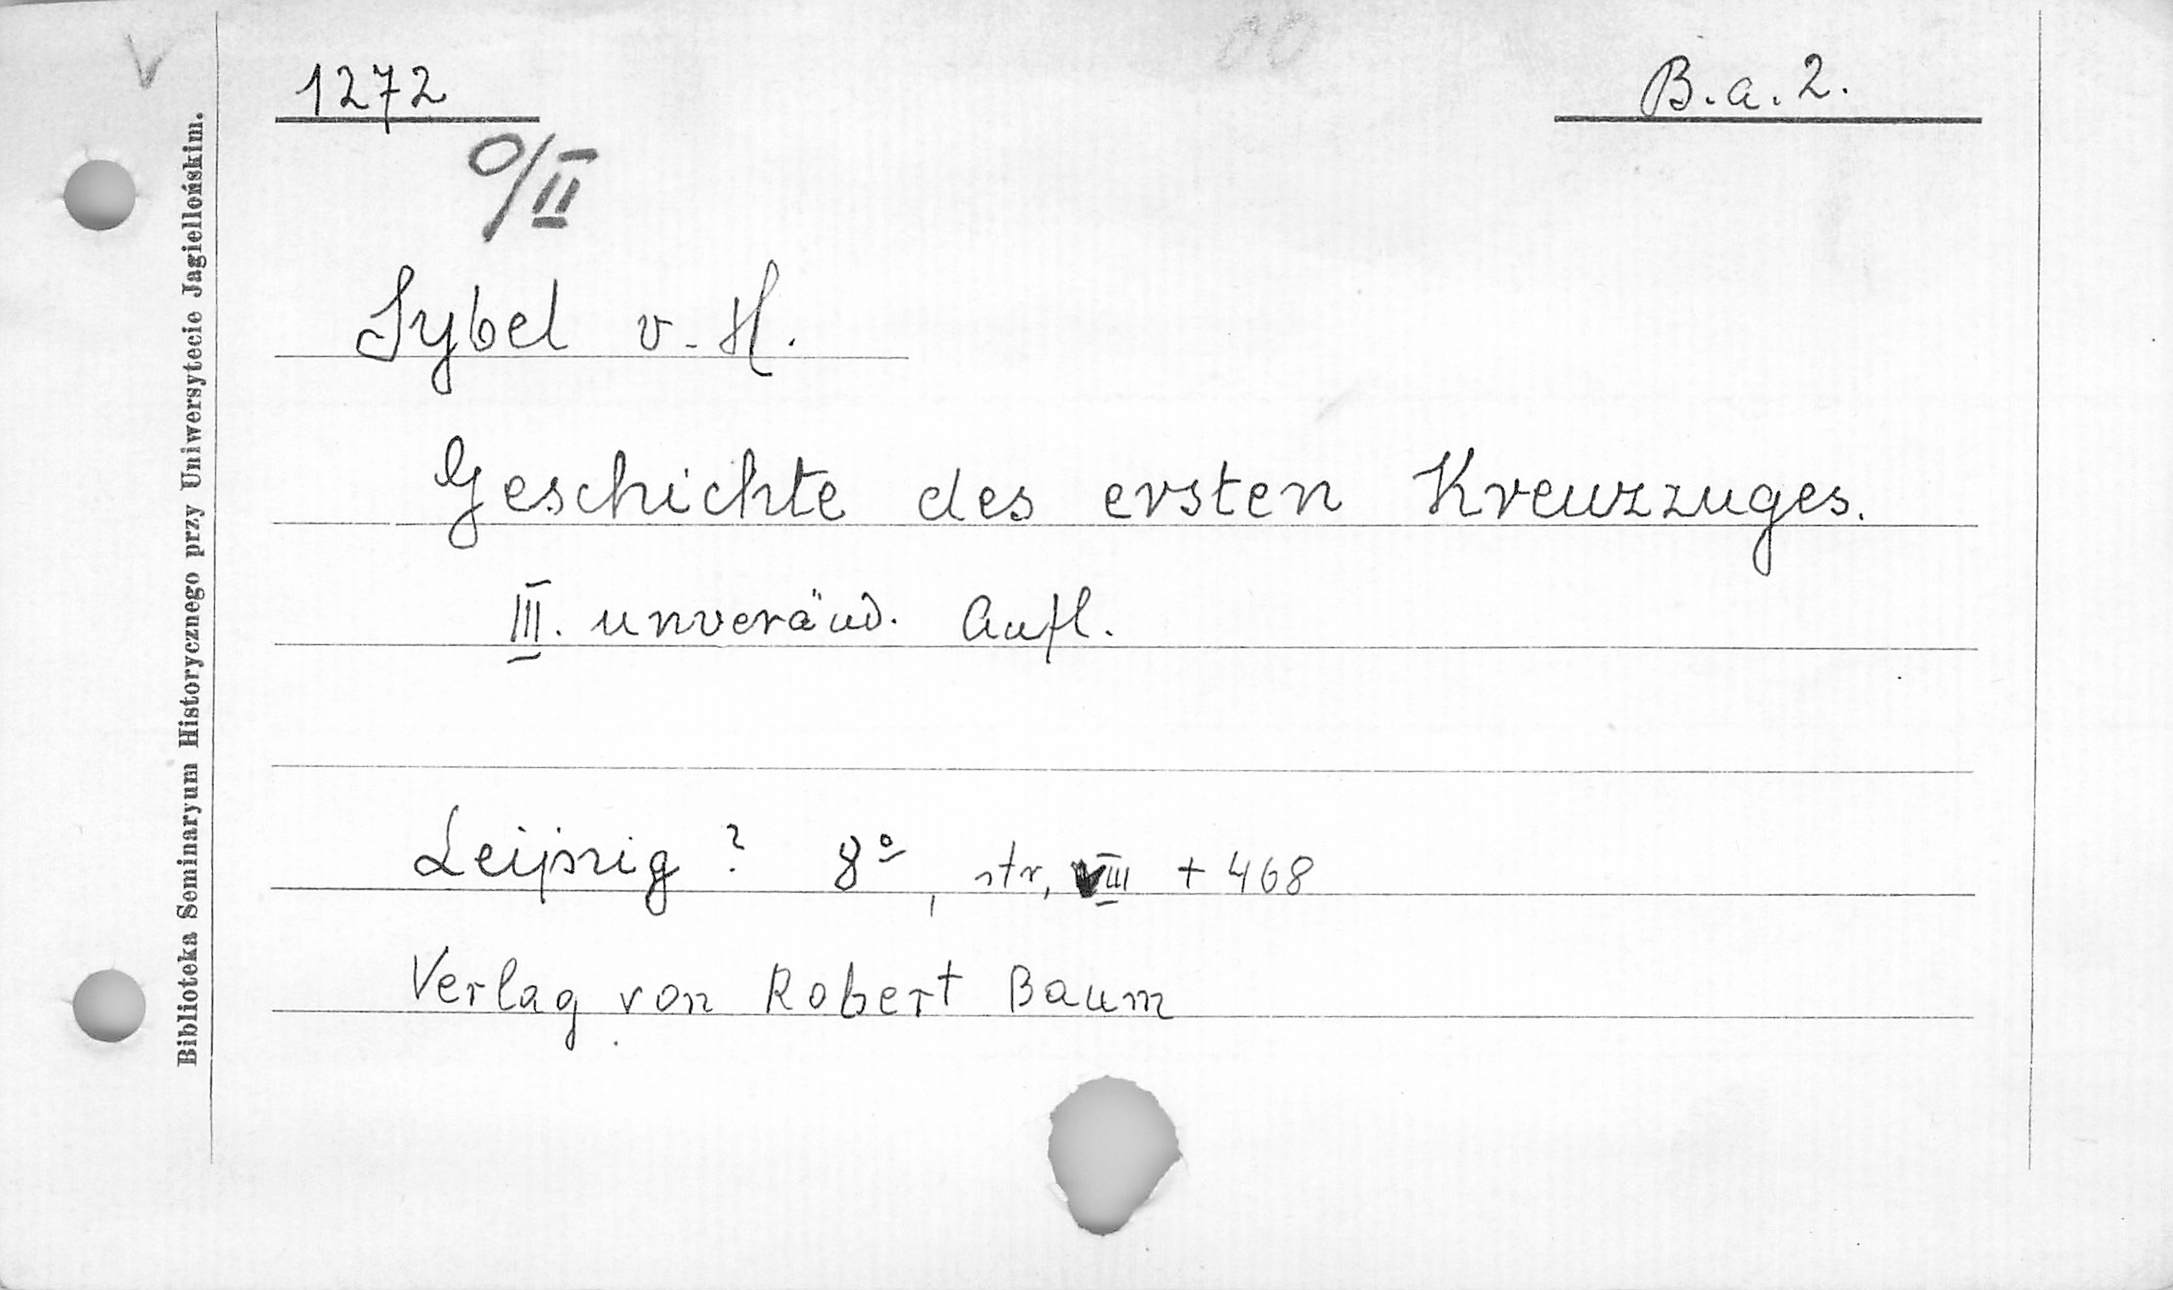 1272
B.a.2.
O/II
Sybel v. H.
Geschichte des ersten Kreuzzuges.
III. unveränd. Aufl.
Leipzig ? 8º, str, VIII + 468
Verlag von Robert Baum
Biblioteka Seminaryum Historycznego przy Uniwersytecie Jagiellońskim.